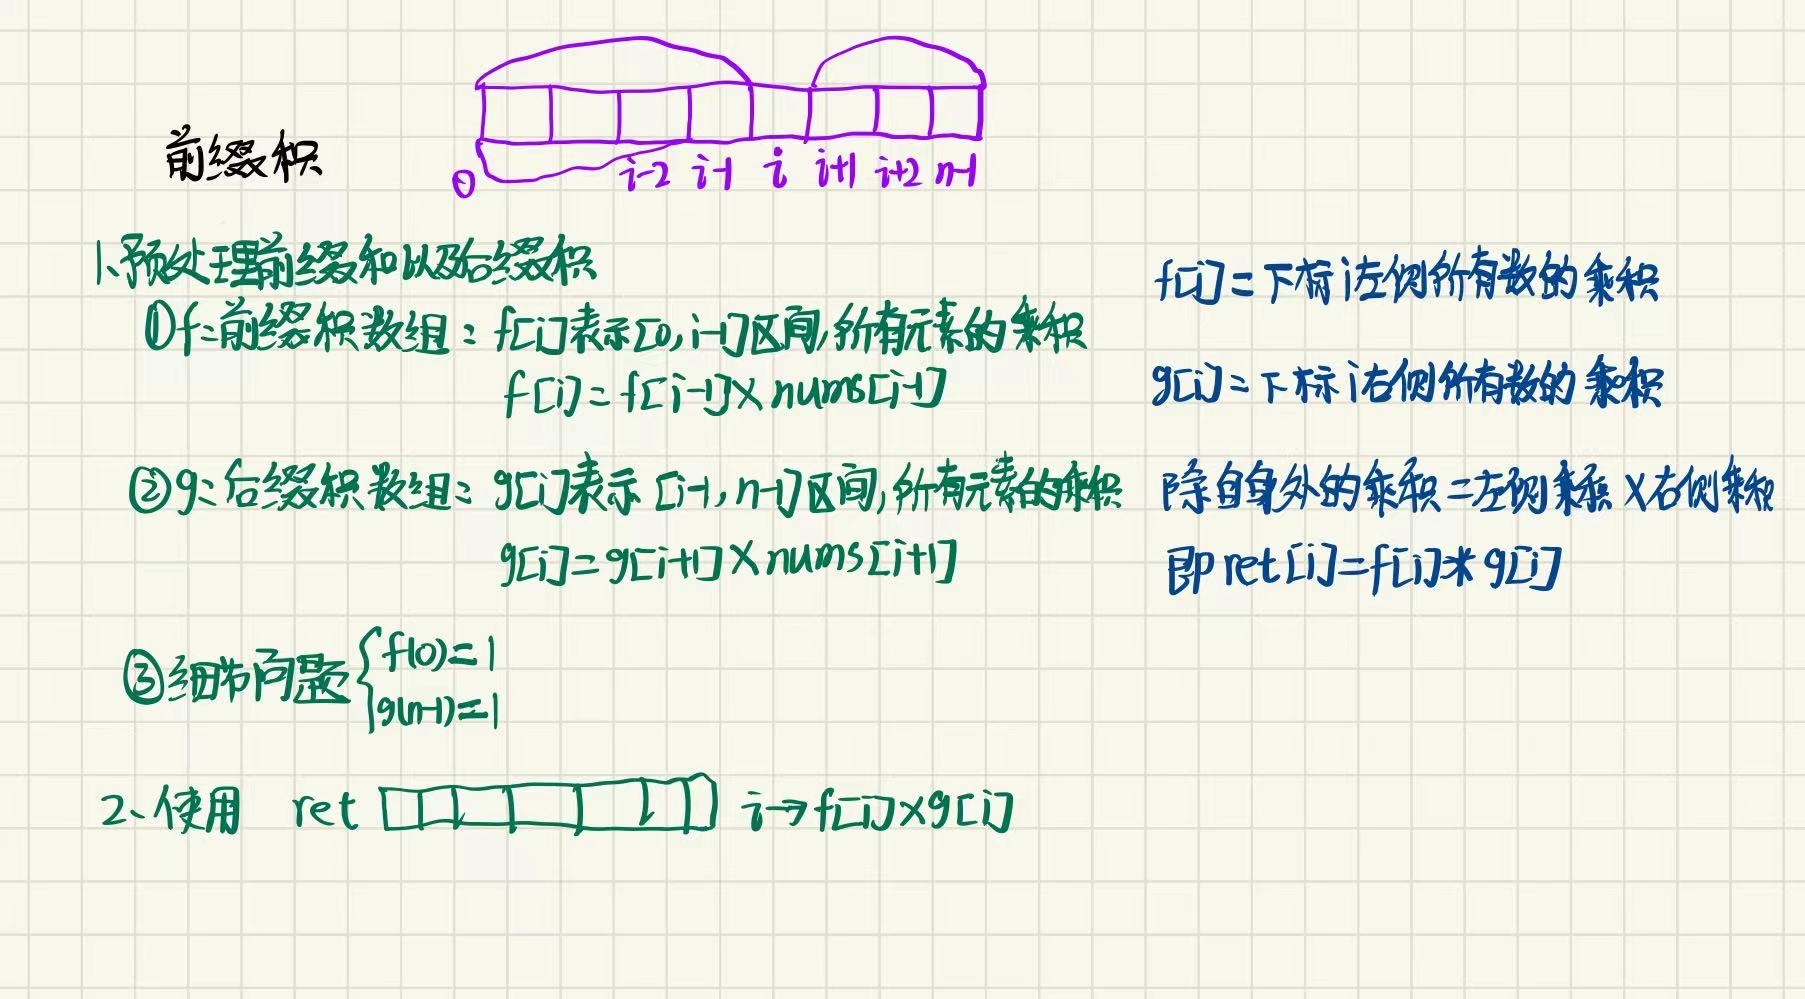 前缀积
0 i-2 i-1 i i+1 i+2 n-1
1、预处理前缀和以及后缀积
①f:前缀积数组：f[i]表示[0,i-1]区间,所有元素的乘积
f[i]=f[i-1]×nums[i-1]
②g:后缀积数组：g[i]表示[i-1,n-1]区间,所有元素的乘积
g[i]=g[i+1]×nums[i+1]
③细节问题{f(0)=1
g(n-1)=1
2、使用 ret i→f[i]×g[i]
f[i]=下标i左侧所有数的乘积
g[i]=下标i右侧所有数的乘积
除自身外的乘积=左侧乘积×右侧乘积
即ret[i]=f[i]*g[i]